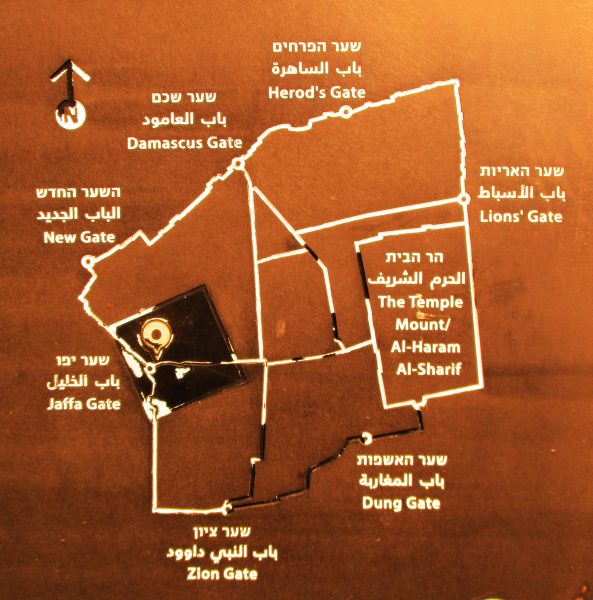 שער הפרחים
باب الساهرة
Herod's Gate
שער שכם
باب العامود
Damascus Gate
N
שער האריות
باب الأسباط
Lions' Gate
השער החדש
الباب الجديد
New Gate
הר הבית
الحرم الشريف
The Temple
Mount/
Al-Haram
Al-Sharif
שער יפו
باب الخليل
Jaffa Gate
שער האשפות
باب المغاربة
Dung Gate
שער ציון
باب النبي داوود
Zion Gate